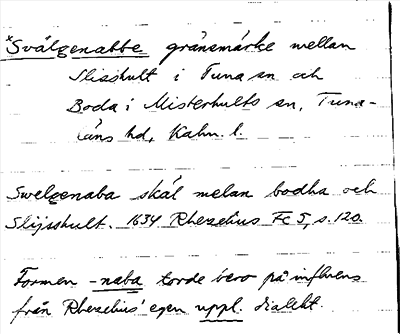 *Svälgenabbe gränsmärke mellan
Slisshult i Tuna sn och
Boda i Misterhults sn, Tuna-
läns hd, Kalm. l.
Swelgenaba skäl melan bodha och
Slijsshult. 1634 Rhezelius Fc 5, s. 120.
Formen -naba torde bero på influens
från Rhezelius' egen uppl. dialekt.